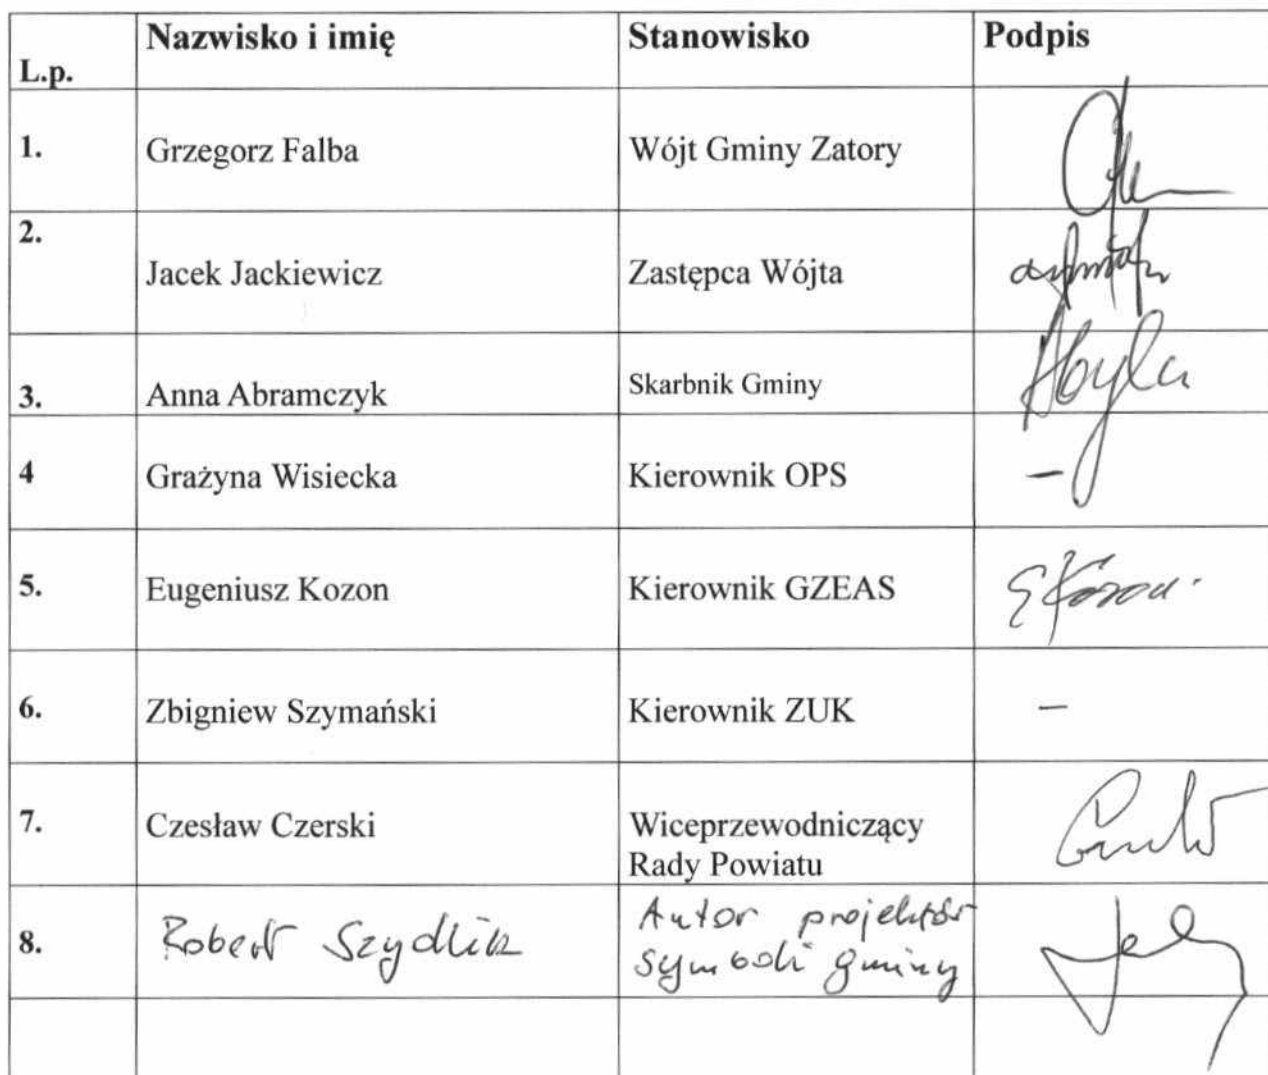 L.p. Nazwisko i imię Stanowisko Podpis
1. Grzegorz Falba Wójt Gminy Zatory
2. Jacek Jackiewicz Zastępca Wójta
3. Anna Abramczyk Skarbnik Gminy
4 Grażyna Wisiecka Kierownik OPS –
5. Eugeniusz Kozon Kierownik GZEAS EKozon
6. Zbigniew Szymański Kierownik ZUK –
7. Czesław Czerski Wiceprzewodniczący
Rady Powiatu
8. Robert Szydlik Autor projektów
symboli gminy